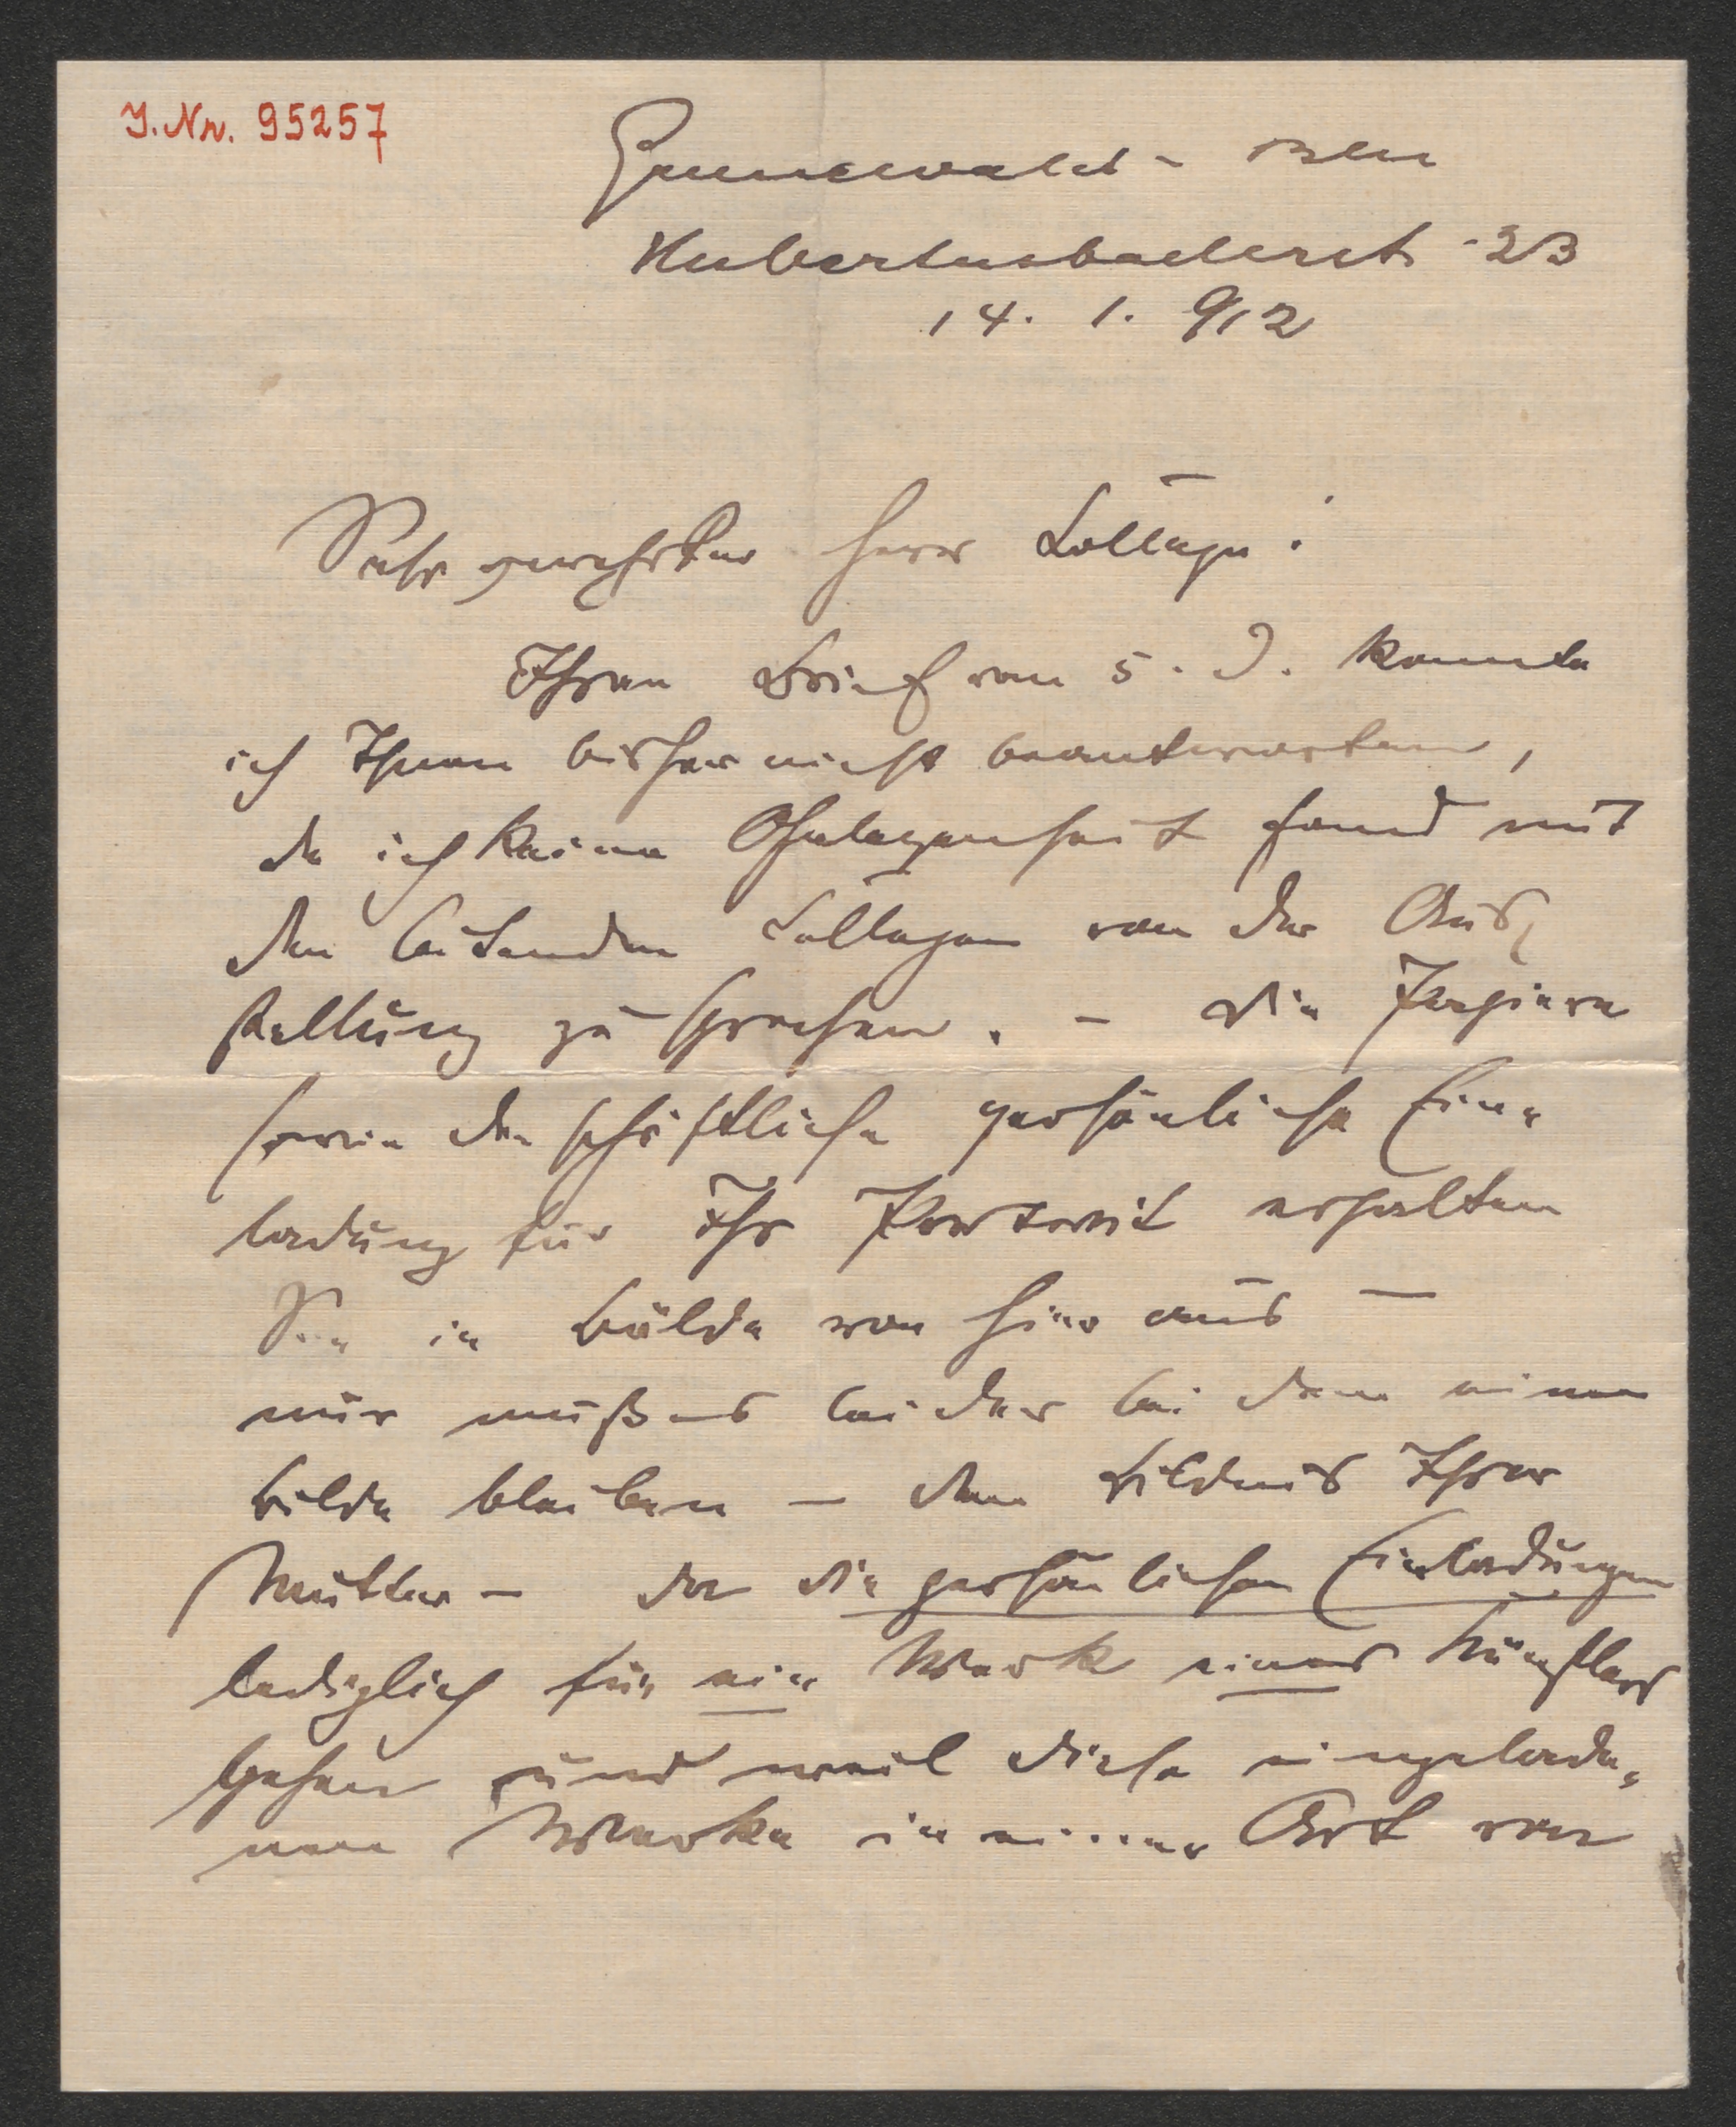 J. Nr. 95257
Grunewald - Bln
Hubertusbaderst. 23
14. 1. 912
Sehr geehrter Herr Kollege!
Ihren Brief vom 5. d. konnte
ich Ihnen bisher nicht beantworten,
da ich keine Gelegenheit fand mit
den leitenden Kollegen von der Aus-
stellung zu sprechen. - Die Papiere
sowie die schriftliche persönliche Ein-
ladung für Ihr Portrait erhalten
Sie in Bälde von hier aus —
nur muß es leider bei dem einen
Bilde bleiben — dem Bildnis Ihrer
Mutter — da die persönlichen Einladungen
lediglich für ein Werk eines Künstlers
gehen und weil diese eingelade-
nen Werke in einer Art von